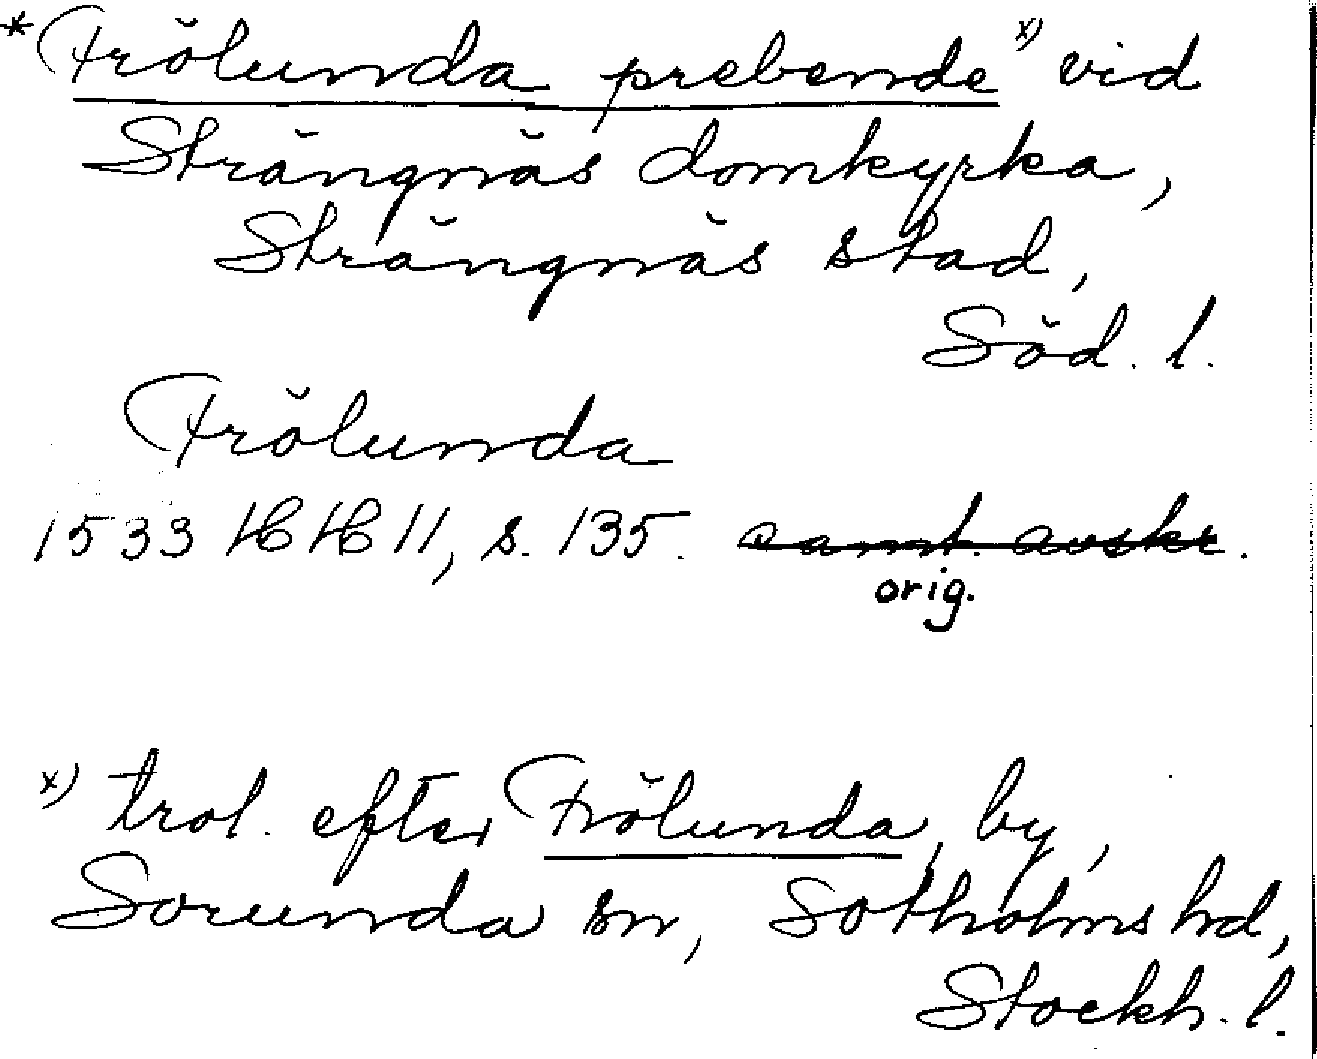 *Frölunda prebende x) vid
Strängnäs domkyrka,
Strängnäs stad,
Söd. l.
Frölunda
1533 HH 11, s. 135. samt. avskr.
orig.
x) trol. efter Frölunda, by,
Sorunda sn, Sotholms hd,
Stockh. l.